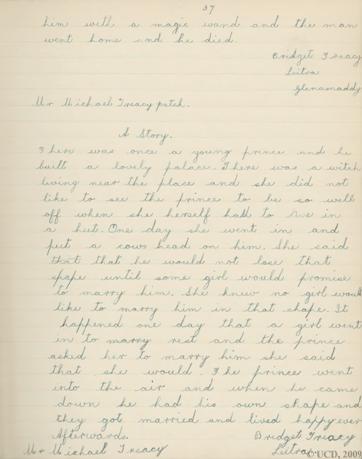 37
him with a magic wand and the man
went home and he died.
Bridget Treacy
Leitra
Glenamaddy
Mr Michael Treacy
A Story.
There was once a young prince and he
built a lovely palace. There was a witch
living near the place and she did not
like to see the prince to be so well
off when she herself had to live in
a hut. One day she went in and
put a cows head on him. She said
that that he would not lose that
shape until some girl would promise
to marry him. She knew no girl would
like to marry him in that shape. It
happened one day that a girl went
in to marry rest and the prince
asked her to marry him she said
that she would. The prince went
into the air and when he came
down he had his own shape and
they got married and lived happy ever
afterwards.
Bridget Treacy
Mr Michael Treacy
Leitra
© UCD, 2009